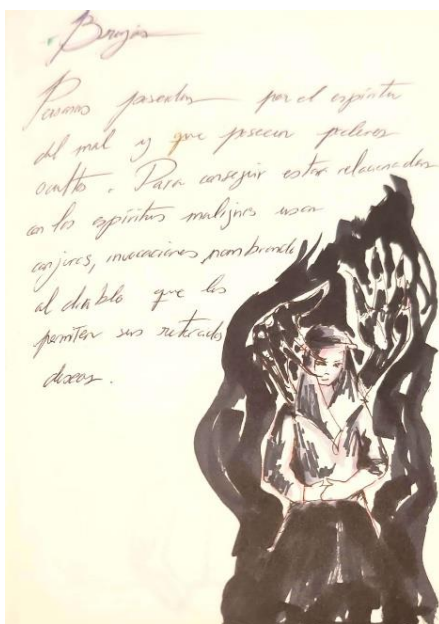 Brujas
Personas poseidas por el espíritu
del mal y que poseen poderes
ocultos. Para conseguir estar relacionadas
con los espíritus malignos usan
conjuros, invocaciones, nombrando
al diablo que les
permitan sus
deseos.